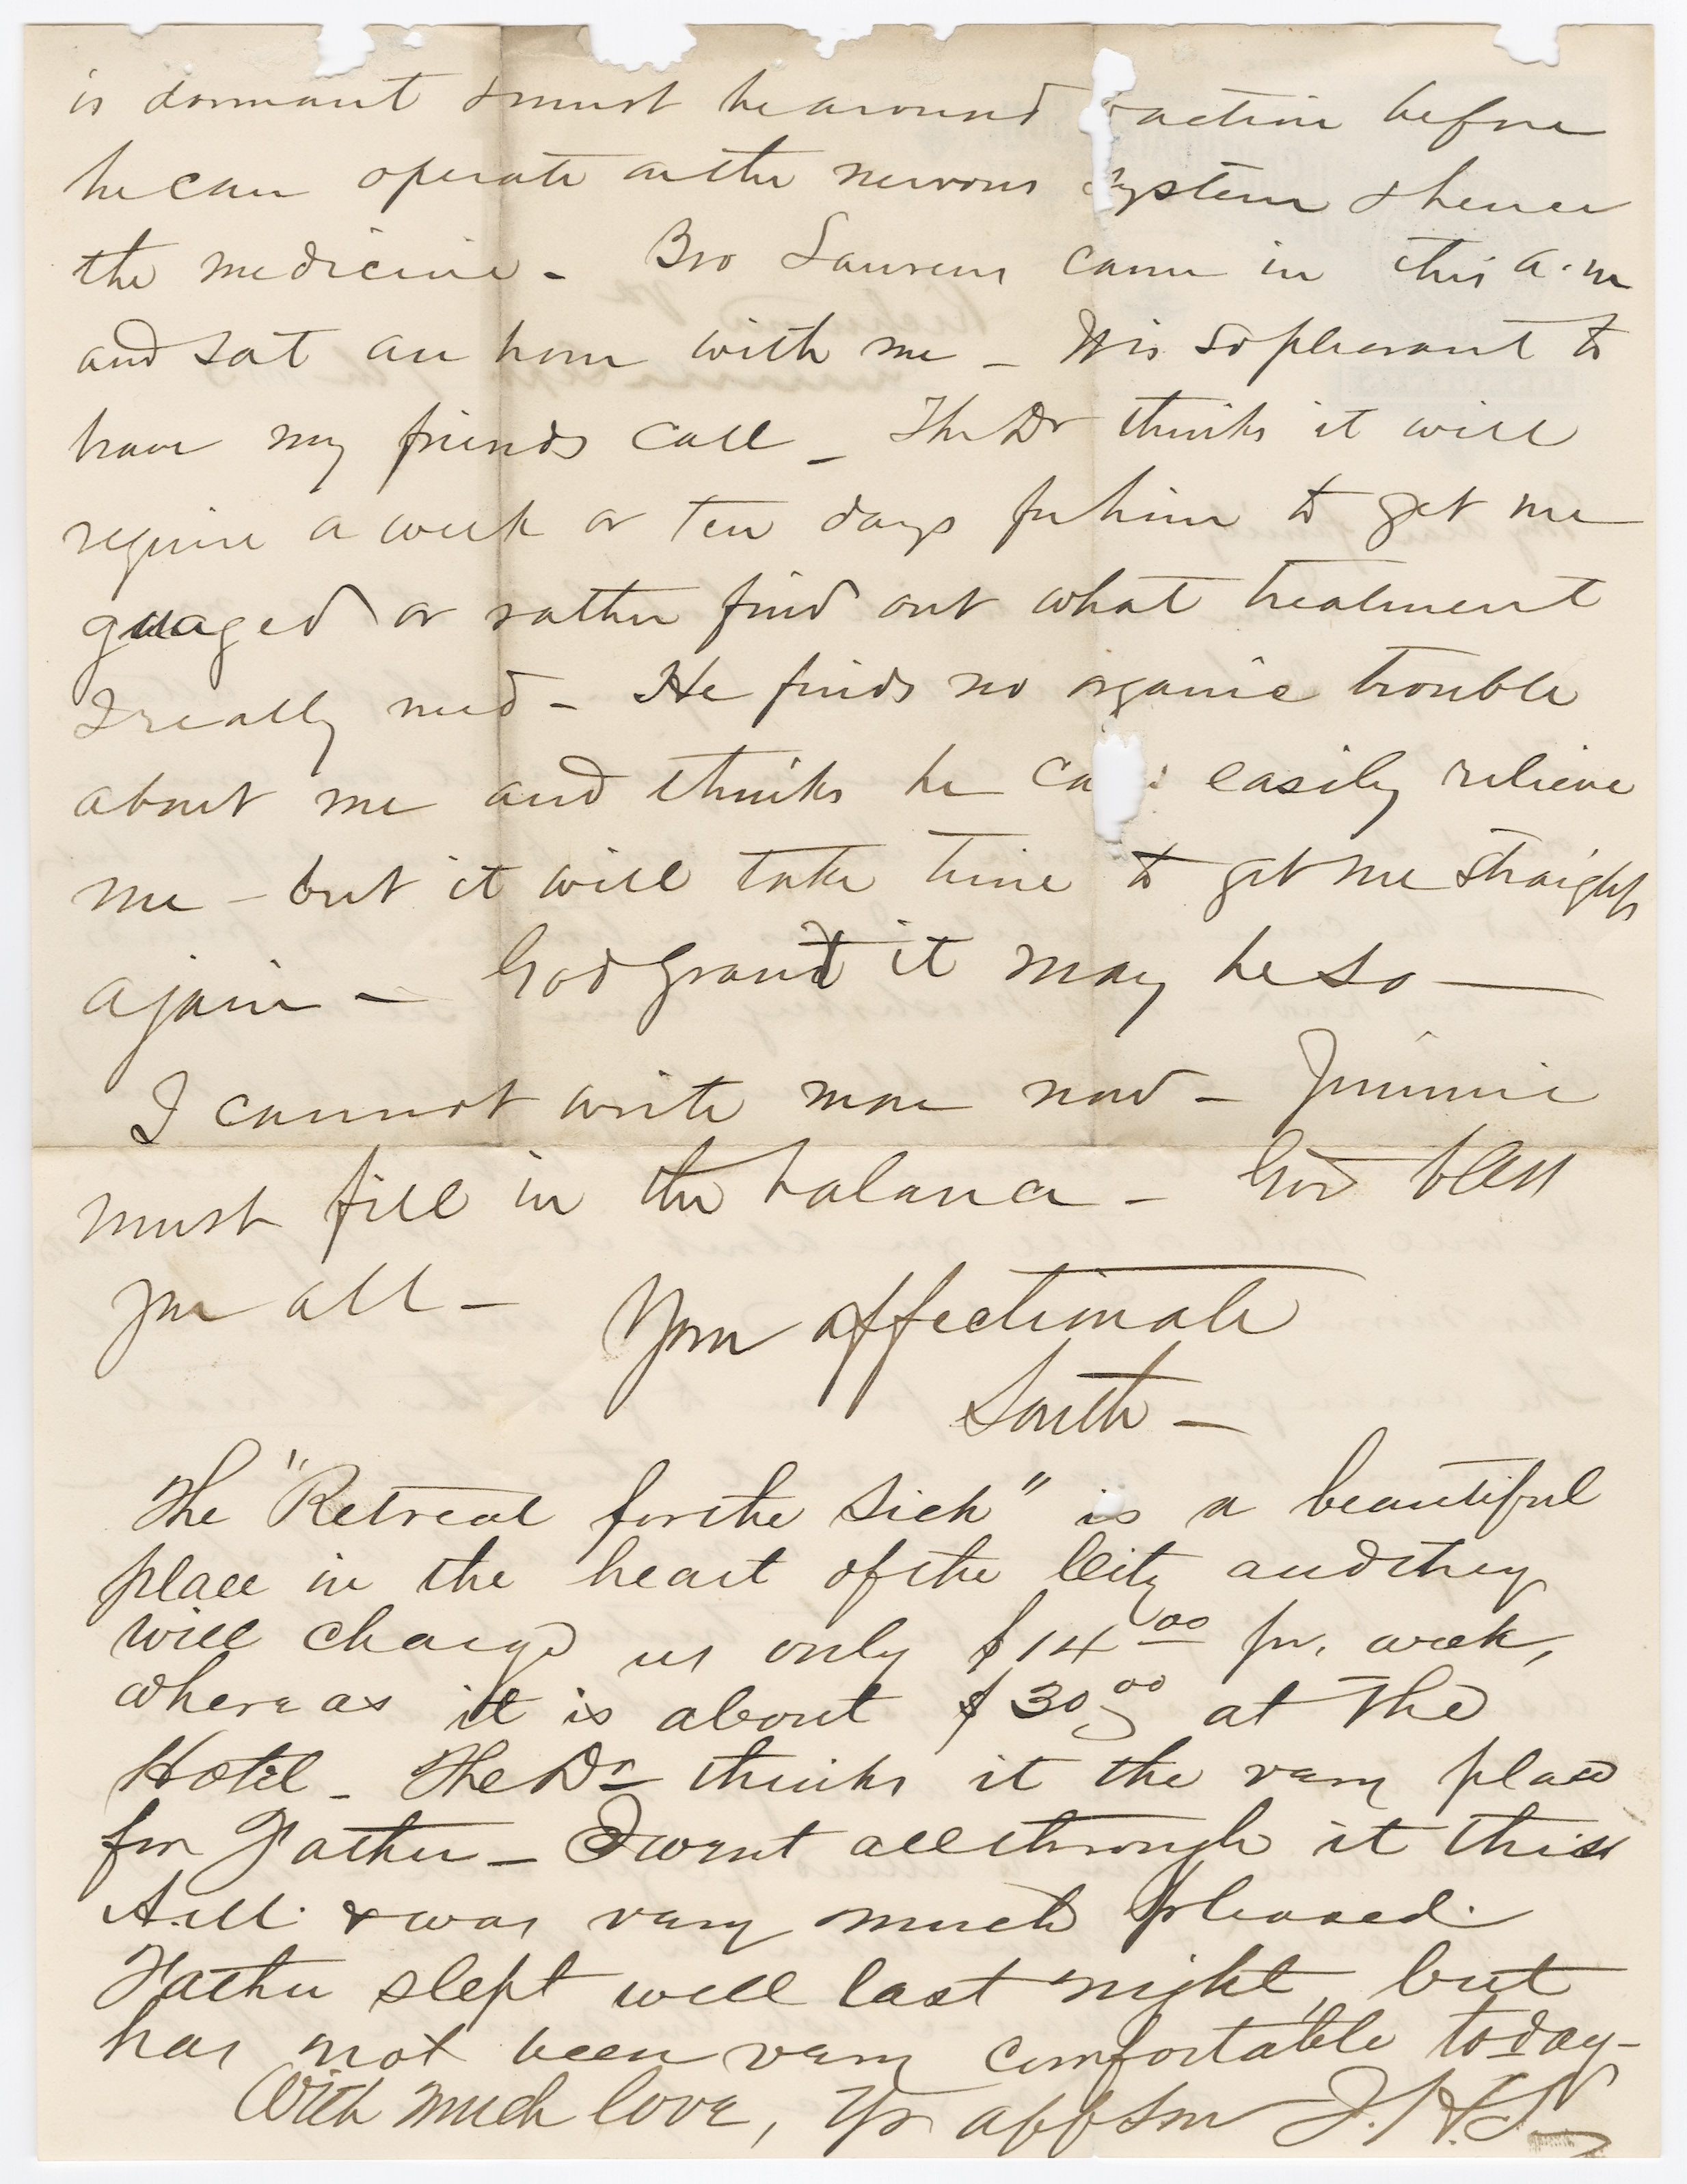 is dormant & must be around action before
he can operate on the nervous system & hence
the medicine - Bro Laurens came in this a.m
and sat an hour with me - It is so pleasant to
have my friends call - The Dr thinks it will
require a week or ten days for him to get me
guaged or rather find out what treatment
I really need - He finds no organic trouble
about me and thinks he ca easily relieve
me - but it will take time to get me straight
again - God grant it may be so -
I cannot write more now - Jimmie
must fill in the balance - God bless
you all - Your affectionate
South -
The "Retreat for the Sick" is a beautiful
place in the heart of the City and they
will charge us only $14.00 pr. week,
whereas it is about $30.00 at the
Hotel - The Dr thinks it the very place
for Father - I went all through it this
A.M. & was very much pleased.
Father slept well last night, but
has not been very comfortable today -
With much love, Yr aff son J.H.S.